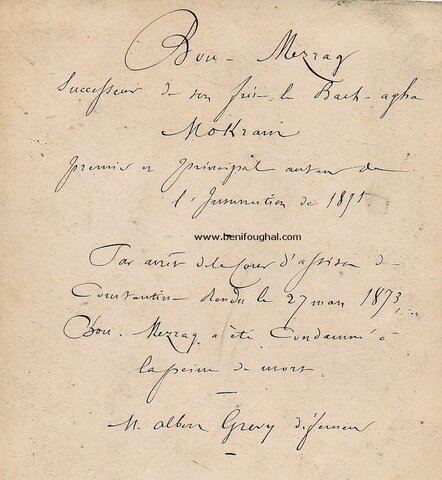 Bou-Mezrag
Successeur de son frère le Bach-agha
Mokrani
premier et principal auteur de
l'Insurrection de 1871
www.benifoughal.com
Par arrêt de la Cour d'assises de
Constantine Rendu le 27 mars 1873
Bou-Mezrag a été Condamné à
la peine de mort
-
M. Albert Grevy défenseur
-